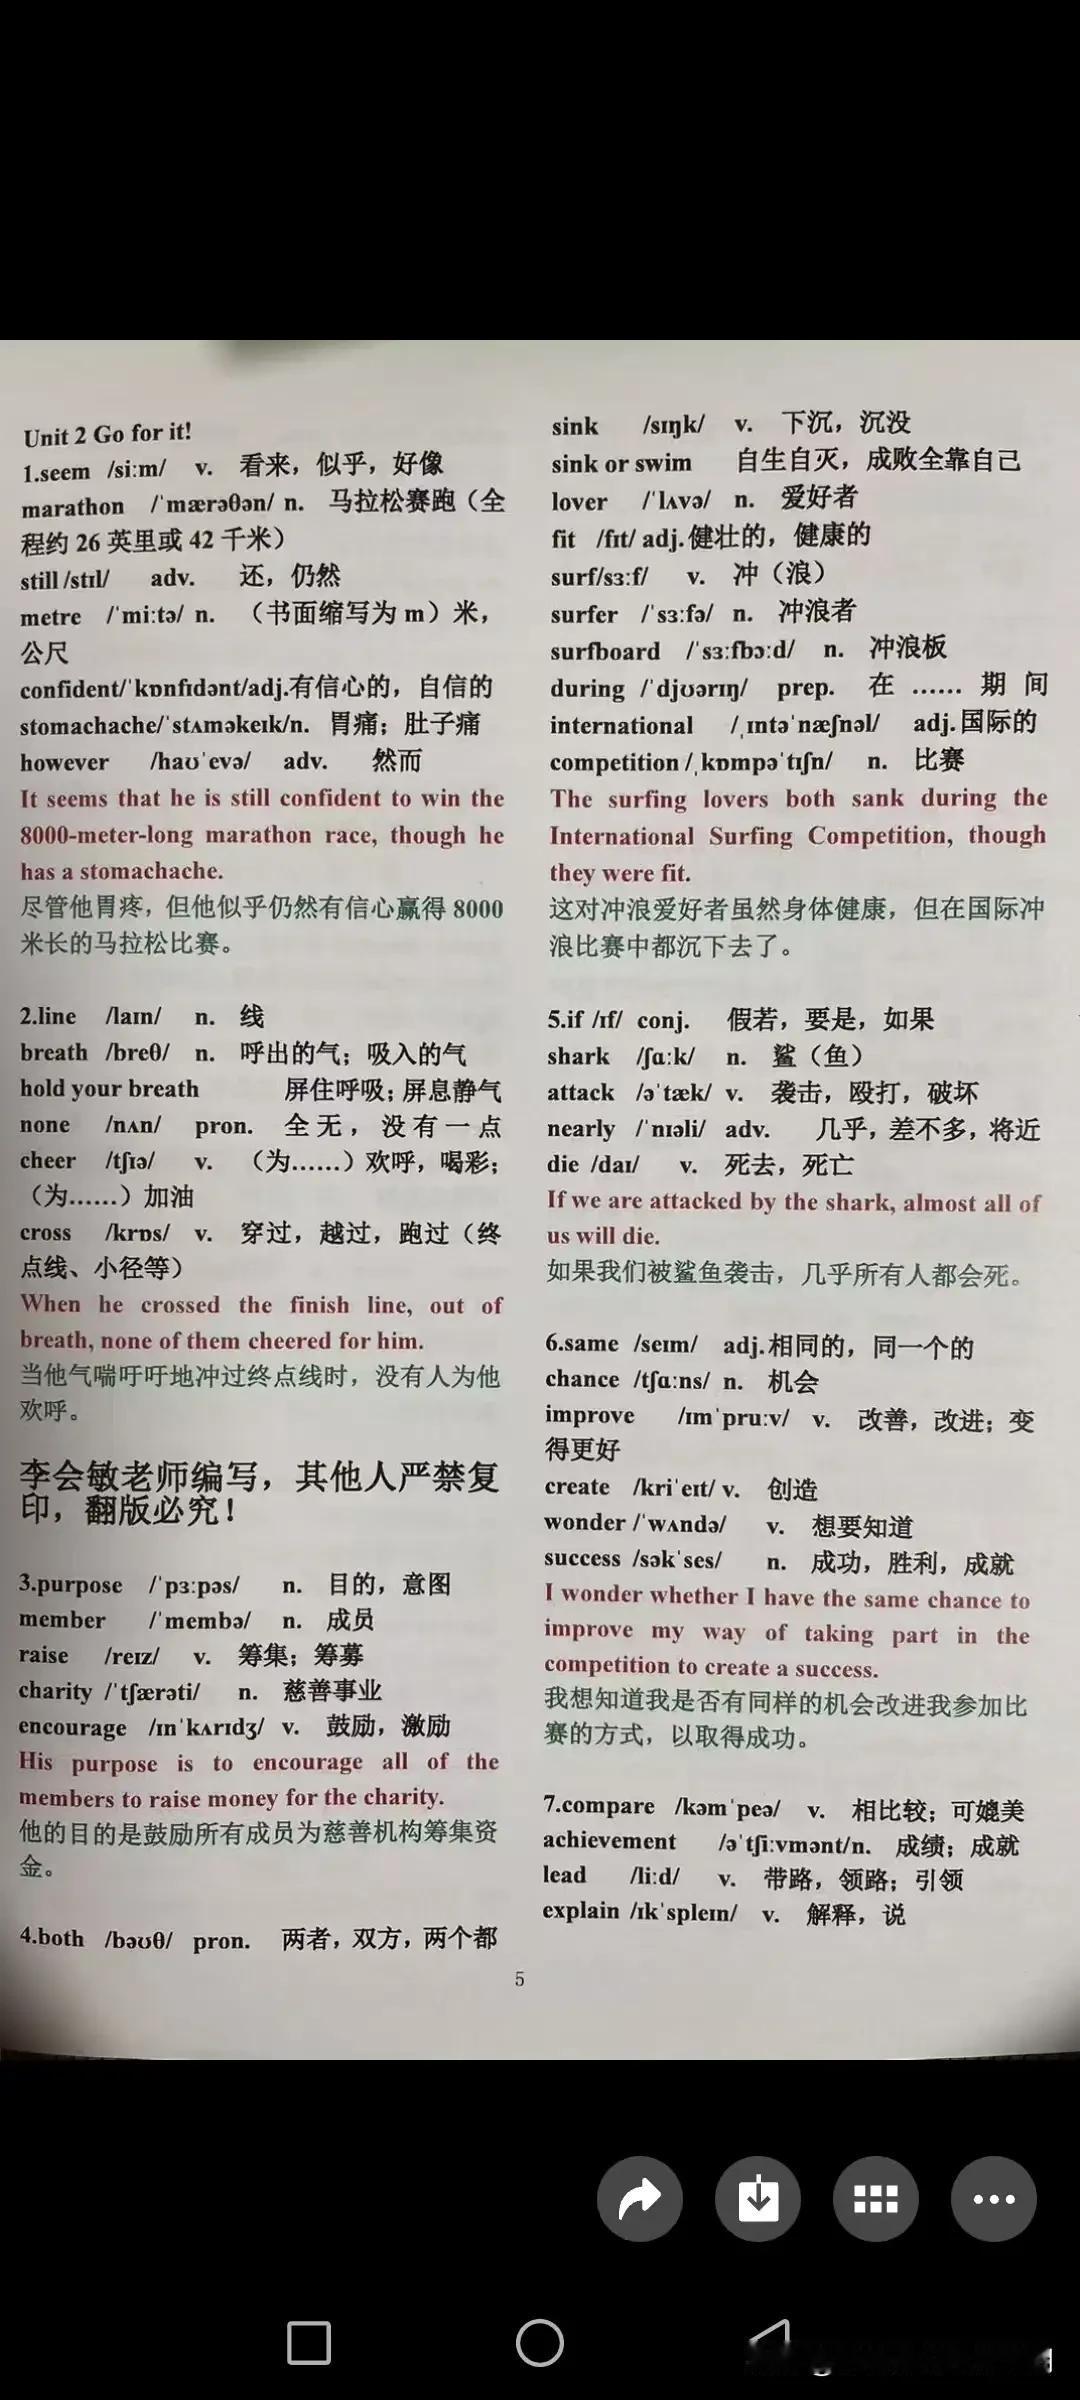 Unit 2 Go for it!
1.seem /siːm/ v. 看来，似乎，好像
marathon /ˈmærəθən/ n. 马拉松赛跑（全
程约 26 英里或 42 千米）
still /stɪl/ adv. 还，仍然
metre /ˈmiːtə/ n. （书面缩写为 m）米，
公尺
confident/ˈkɒnfɪdənt/adj.有信心的，自信的
stomachache/ˈstʌməkeɪk/n. 胃痛；肚子痛
however /haʊˈevə/ adv. 然而
It seems that he is still confident to win the
8000-meter-long marathon race, though he
has a stomachache.
尽管他胃疼，但他似乎仍然有信心赢得 8000
米长的马拉松比赛。
2.line /laɪn/ n. 线
breath /breθ/ n. 呼出的气；吸入的气
hold your breath 屏住呼吸；屏息静气
none /nʌn/ pron. 全无，没有一点
cheer /tʃɪə/ v. （为……）欢呼，喝彩；
（为……）加油
cross /krɒs/ v. 穿过，越过，跑过（终
点线、小径等）
When he crossed the finish line, out of
breath, none of them cheered for him.
当他气喘吁吁地冲过终点线时，没有人为他
欢呼。
李会敏老师编写，其他人严禁复
印，翻版必究！
3.purpose /ˈpɜːpəs/ n. 目的，意图
member /ˈmembə/ n. 成员
raise /reɪz/ v. 筹集；筹募
charity /ˈtʃærəti/ n. 慈善事业
encourage /ɪnˈkʌrɪdʒ/ v. 鼓励，激励
His purpose is to encourage all of the
members to raise money for the charity.
他的目的是鼓励所有成员为慈善机构筹集资
金。
4.both /bəʊθ/ pron. 两者，双方，两个都
sink /sɪŋk/ v. 下沉，沉没
sink or swim 自生自灭，成败全靠自己
lover /ˈlʌvə/ n. 爱好者
fit /fɪt/ adj.健壮的，健康的
surf/sɜːf/ v. 冲（浪）
surfer /ˈsɜːfə/ n. 冲浪者
surfboard /ˈsɜːfbɔːd/ n. 冲浪板
during /ˈdjʊərɪŋ/ prep. 在 …… 期 间
international /ˌɪntəˈnæʃnəl/ adj.国际的
competition /ˌkɒmpəˈtɪʃn/ n. 比赛
The surfing lovers both sank during the
International Surfing Competition, though
they were fit.
这对冲浪爱好者虽然身体健康，但在国际冲
浪比赛中都沉下去了。
5.if /ɪf/ conj. 假若，要是，如果
shark /ʃɑːk/ n. 鲨（鱼）
attack /əˈtæk/ v. 袭击，殴打，破坏
nearly /ˈnɪəli/ adv. 几乎，差不多，将近
die /daɪ/ v. 死去，死亡
If we are attacked by the shark, almost all of
us will die.
如果我们被鲨鱼袭击，几乎所有人都会死。
6.same /seɪm/ adj.相同的，同一个的
chance /tʃɑːns/ n. 机会
improve /ɪmˈpruːv/ v. 改善，改进；变
得更好
create /kriˈeɪt/ v. 创造
wonder /ˈwʌndə/ v. 想要知道
success /səkˈses/ n. 成功，胜利，成就
I wonder whether I have the same chance to
improve my way of taking part in the
competition to create a success.
我想知道我是否有同样的机会改进我参加比
赛的方式，以取得成功。
7.compare /kəmˈpeə/ v. 相比较；可媲美
achievement /əˈtʃiːvmənt/n. 成绩；成就
lead /liːd/ v. 带路，领路；引领
explain /ɪkˈspleɪn/ v. 解释，说
5